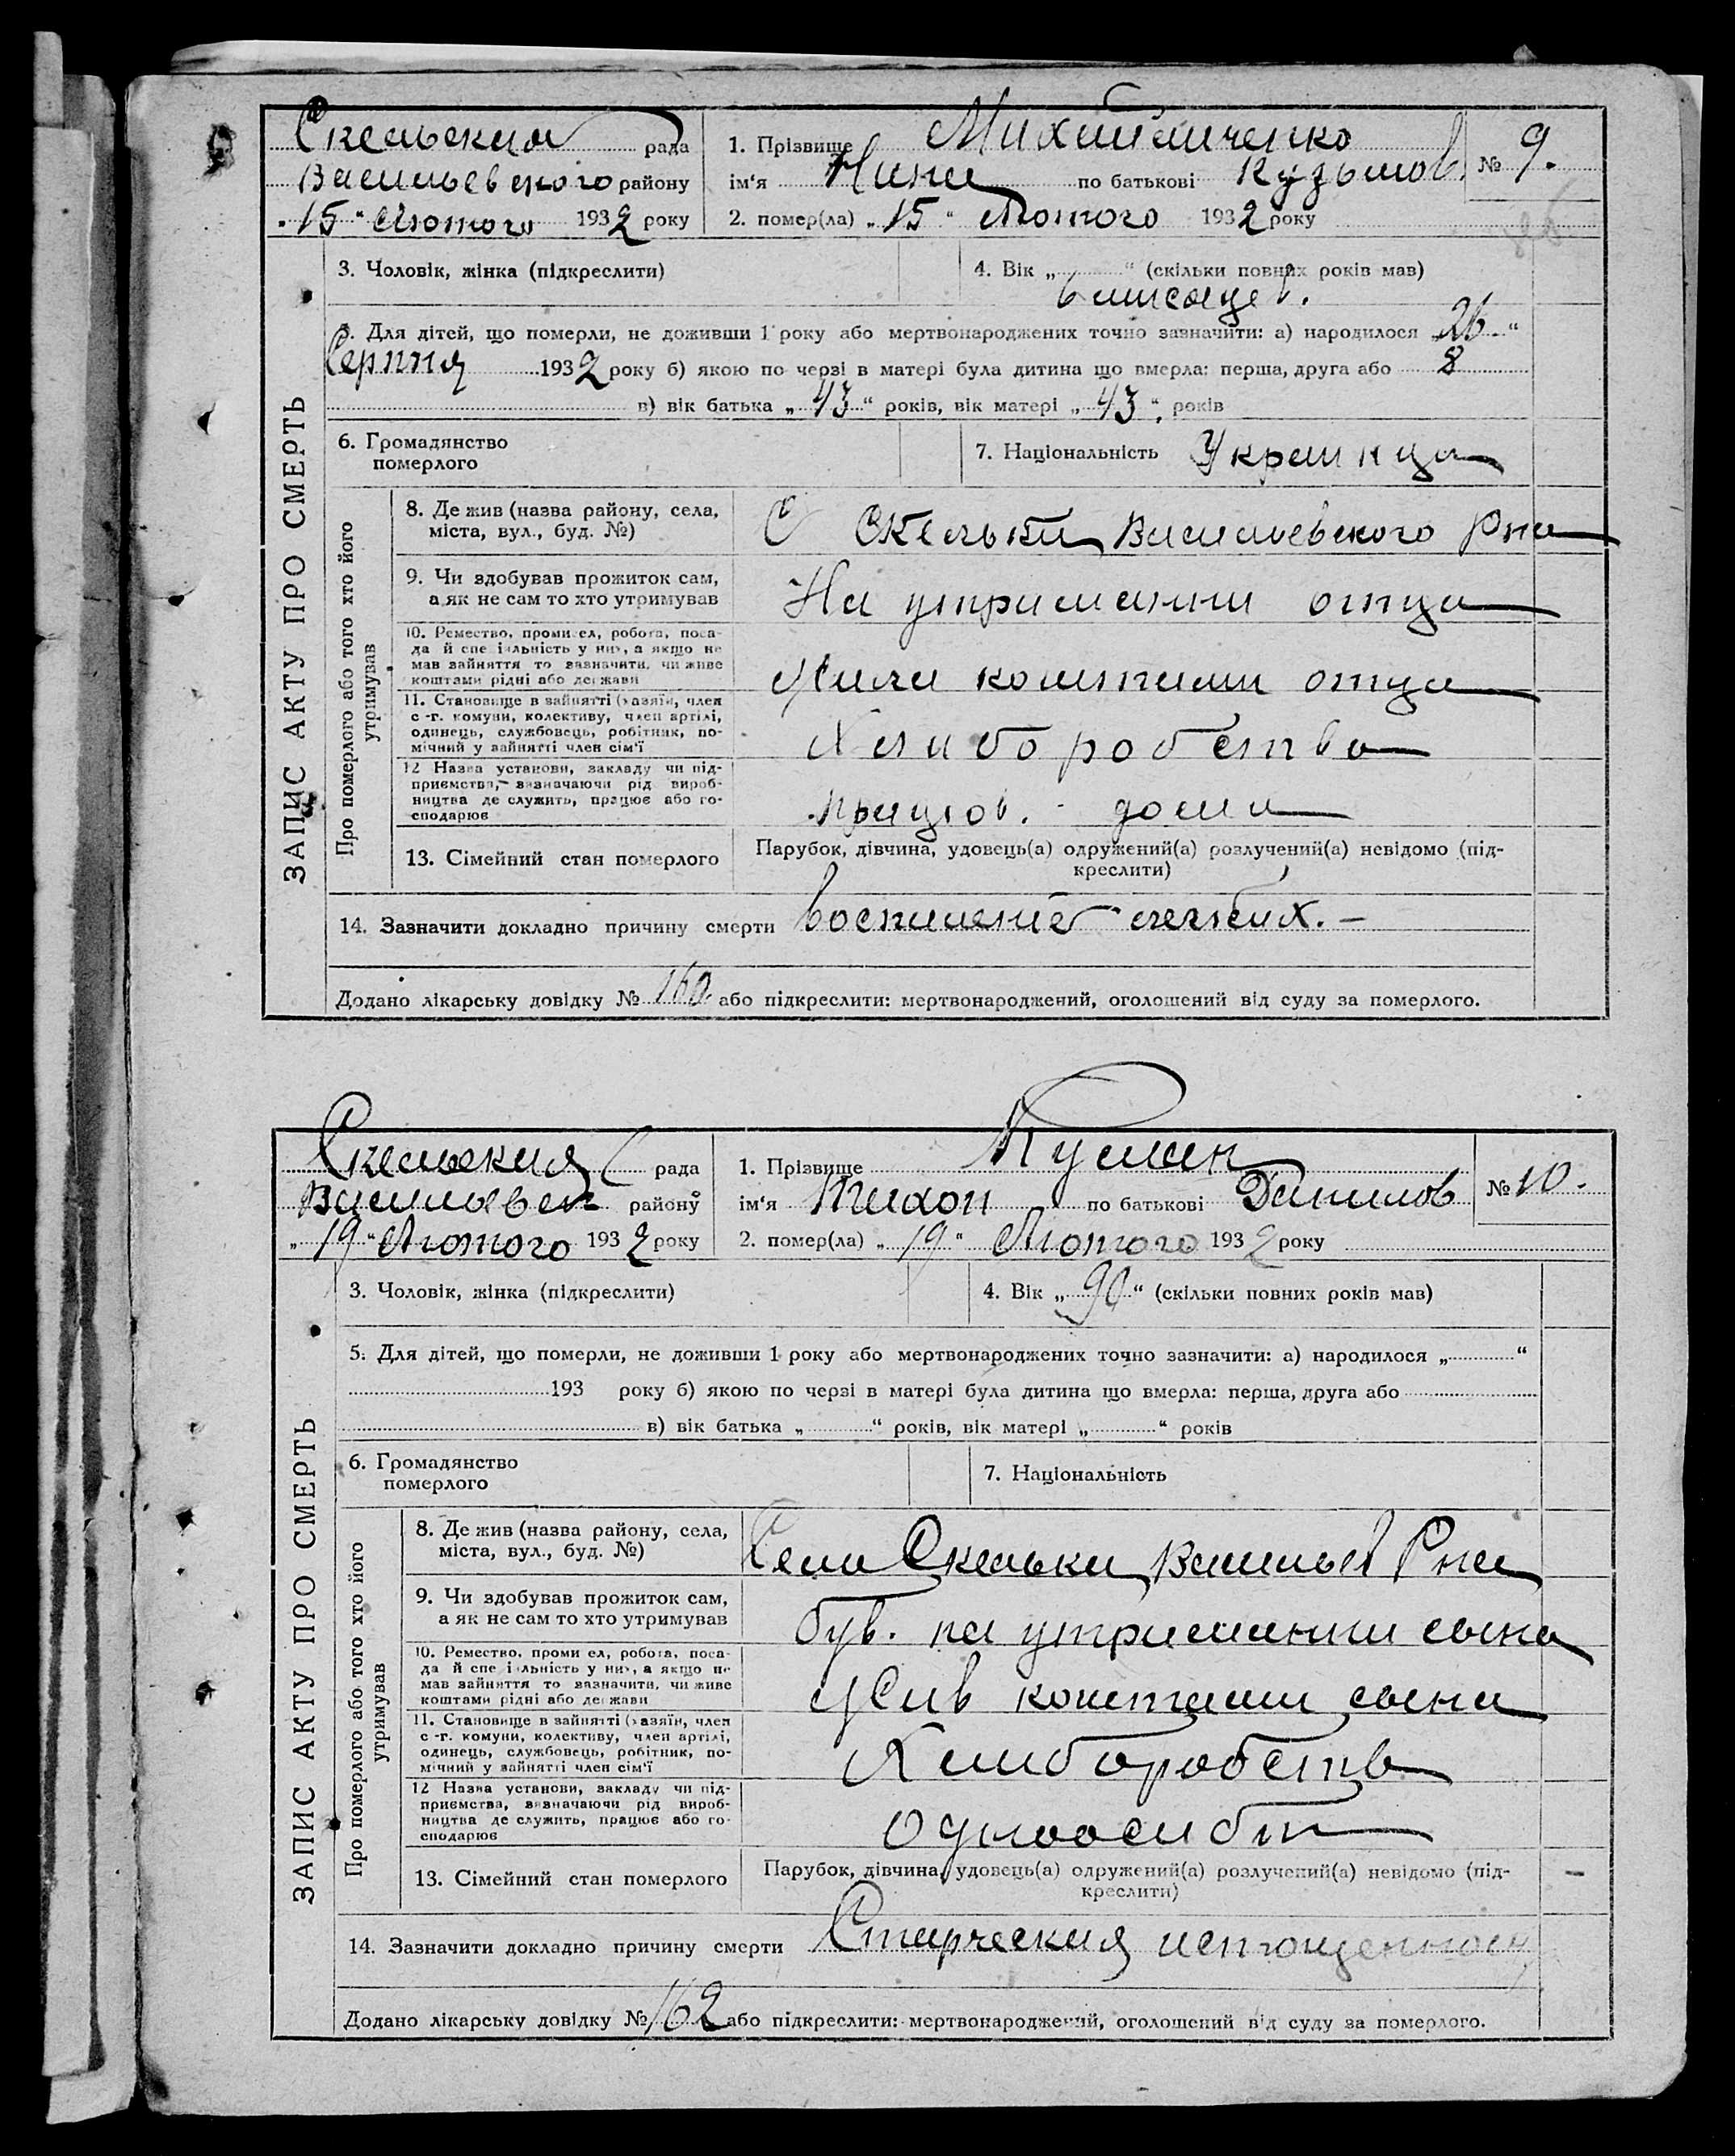 Скельская рада
1. Прізвище Михайличенко
№ 9.
Васильевского району
ім‘я Нина по батькові Кузьмов.
„15“ Лютого 1932 року
2. помер(ла) „15“ Лютого 1932 року
3. Чоловік, жінка (підкреслити)
4. Вік „ “ (скільки повних років мав)
6 мисяцев.
5. Для дітей, що померли, не доживши 1 року або мертвонароджених точно зазначити: а) народилося 26 “
Серпня 1932 року б) якою по черзі в матері була дитина що вмерла: перша, друга або 8
в) вік батька „43“ років, вік матері „43“ років
6. Громадянство
померлого
7. Національність Украинца
ЗАПИС АКТУ ПРО СМЕРТЬ
Про померлого або того хто його
утримував
8. Де жив (назва району, села,
міста, вул., буд. №)
С Скельки Васильевского Рна
9. Чи здобував прожиток сам,
а як не сам то хто утримував
На утримании отца
10. Ремество, промисел, робота, поса-
да й спеціальність у них, а якщо не
мав зайняття то зазначити, чи живе
коштами рідні або держави
Жила коштами отца
11. Становище в зайнятті (хазяїн, член
с-г. комуни, колективу, член артілі,
одинець, службовець, робітник, по-
мічний у зайнятті член сім‘ї
Хлиборобства
12 Назва установи, закладу чи під-
приємства, зазначаючи рід вироб-
ництва де служить, працює або го-
сподарює
працюв. дома
13. Сімейний стан померлого
Парубок, дівчина, удовець(а) одружений(а) розлучений(а) невідомо (під-
креслити)
14. Зазначити докладно причину смерти воспаление легких. –
Додано лікарську довідку № 160 або підкреслити: мертвонароджений, оголошений від суду за померлого.
Скельская рада
1. Прізвище
№ 10.
Васильевск району
ім‘я Тихон по батькові Данилов
„19“ Лютого 1932 року
2. помер(ла) „19“ Лютого 1932 року
3. Чоловік, жінка (підкреслити)
4. Вік „90“ (скільки повних років мав)
5. Для дітей, що померли, не доживши 1 року або мертвонароджених точно зазначити: а) народилося „ “
193 року б) якою по черзі в матері була дитина що вмерла: перша, друга або
в) вік батька „ “ років, вік матері „ “ років
6. Громадянство
померлого
7. Національність
ЗАПИС АКТУ ПРО СМЕРТЬ
Про померлого або того хто його
утримував
8. Де жив (назва району, села,
міста, вул., буд. №)
Села Скельки Васильев Рна
9. Чи здобував прожиток сам,
а як не сам то хто утримував
був. на утримании сына
10. Ремество, промисел, робота, поса-
да й спеціальність у них, а якщо не
мав зайняття то зазначити, чи живе
коштами рідні або держави
Жив коштами сына
11. Становище в зайнятті (хазяїн, член
с-г. комуни, колективу, член артілі,
одинець, службовець, робітник, по-
мічний у зайнятті член сім‘ї
Хлиборобств
12 Назва установи, закладу чи під-
приємства, зазначаючи рід вироб-
ництва де служить, працює або го-
сподарює
13. Сімейний стан померлого
Парубок, дівчина, удовець(а) одружений(а) розлучений(а) невідомо (під-
креслити)
14. Зазначити докладно причину смерти Старческая
Додано лікарську довідку № 162 або підкреслити: мертвонароджений, оголошений від суду за померлого.